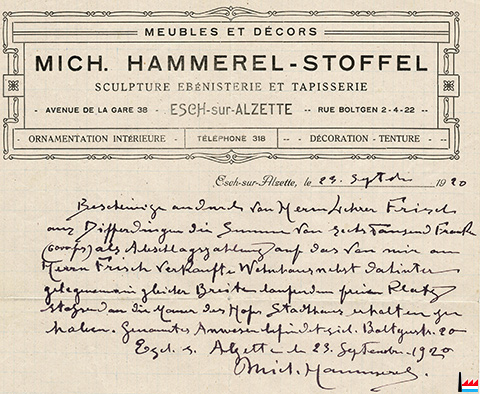 MEUBLES ET DÉCORS
MICH. HAMMEREL-STOFFEL
SCULPTURE EBÉNISTERIE ET TAPISSERIE
- AVENUE DE LA GARE 38 - ESCH-sur-ALZETTE -- RUE BOLTGEN 2-4-22 --
ORNAMENTATION INTÉRIEURE - TÉLÉPHONE 318 -- - DÉCORATION - TENTURE -
Esch-sur-Alzette, le 23. Septbr. 1920
Bescheinige andurch von Herrn Lehrer Frisch
aus Differdingen die Summe von sechstausend Frank
(6000 frs) als Abschlagszahlung auf das von mir an
Herrn Frisch verkaufte Wohnhaus nebst dahinter
gelegenem in gleicher Breite laufendem freien Platz
stossend an die Mauer des Hofes Stadthaus erhalten zu
haben. Genanntes Anwesen befindet sich Boltgenstr. 20
Esch s. Alzette le 23. Septembre 1920
Mich. Hammerel.